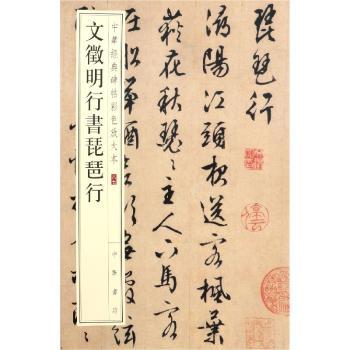 琵琶行
潯陽江頭夜送客楓葉
荻花秋瑟瑟主人下馬客
在船舉酒欲飲無管絃
中華經典碑帖彩色放大本
文徵明行書琵琶行
中華書局